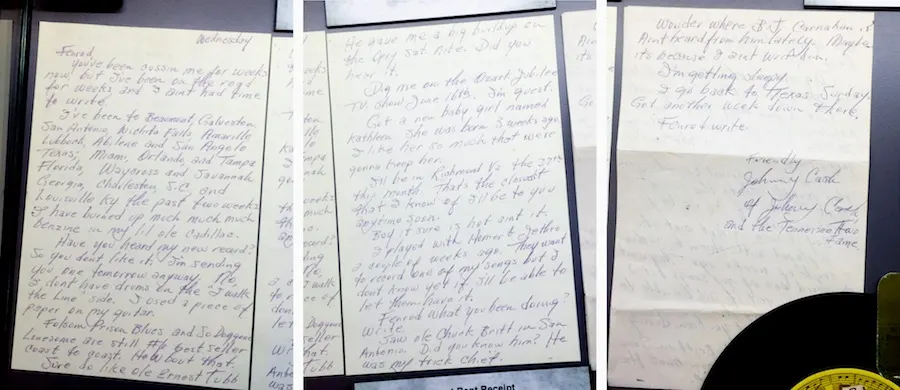 Wednesday
Fenrod,
You've been cussin me for weeks
now, but I've been on the road
for weeks and I aint had time
to write.
I've been to Beaumont, Galveston,
San Antonio, Wichita Falls Amarillo
Lubbock, Abilene and San Angelo
Texas; Miami, Orlando, and Tampa
Florida, Waycross and Savannah
Georgia, Charleston, S.C. and
Louisville Ky the past two weeks
I have burned up much much much
benzine in my lil ole Cadillac.
Have you heard my new record?
So you dont like it. I'm sending
you one tomorrow anyway. No,
I dont have drums on the I walk
the Line side. I used a piece of
paper on my guitar.
Folsom Prison Blues, and So Doggone
Lonesome are still #6 best seller
coast to coast. How bout that.
Sure do like ole Ernest Tubb
He gave me a big buildup on
the Opry Sat. nite. Did you
hear it.
Dig me on the Ozark Jubilee
TV. show June 16th. I'm guest.
Got a new baby girl named
Kathleen. She was born 3 weeks ago
I like her so much that we're
gonna keep her.
I'll be in Richmond Va the 27th
this month. That's the closest
that I know of I'll be to you
anytime soon.
Boy it sure is hot aint it.
I played with Homer & Jethro
a couple of weeks ago. They want
to record one of my songs but I
dont know yet if I'll be able to
let them have it.
Fenrod what you been doing?
Write.
Saw ole Chuck Britt in San
Antonio. Did you know him? He
was my trick chief.
Wonder where B.J. Carnahan is?
Aint heard from him lately. Maybe
its because I aint writ him.
I'm getting sleepy.
I go back to Texas Sunday.
Got another week down there.
Fenrod write.
Friendly
Johnny Cash
of Johnny Cash
and the Tennessee Two
Fame.
Receipt